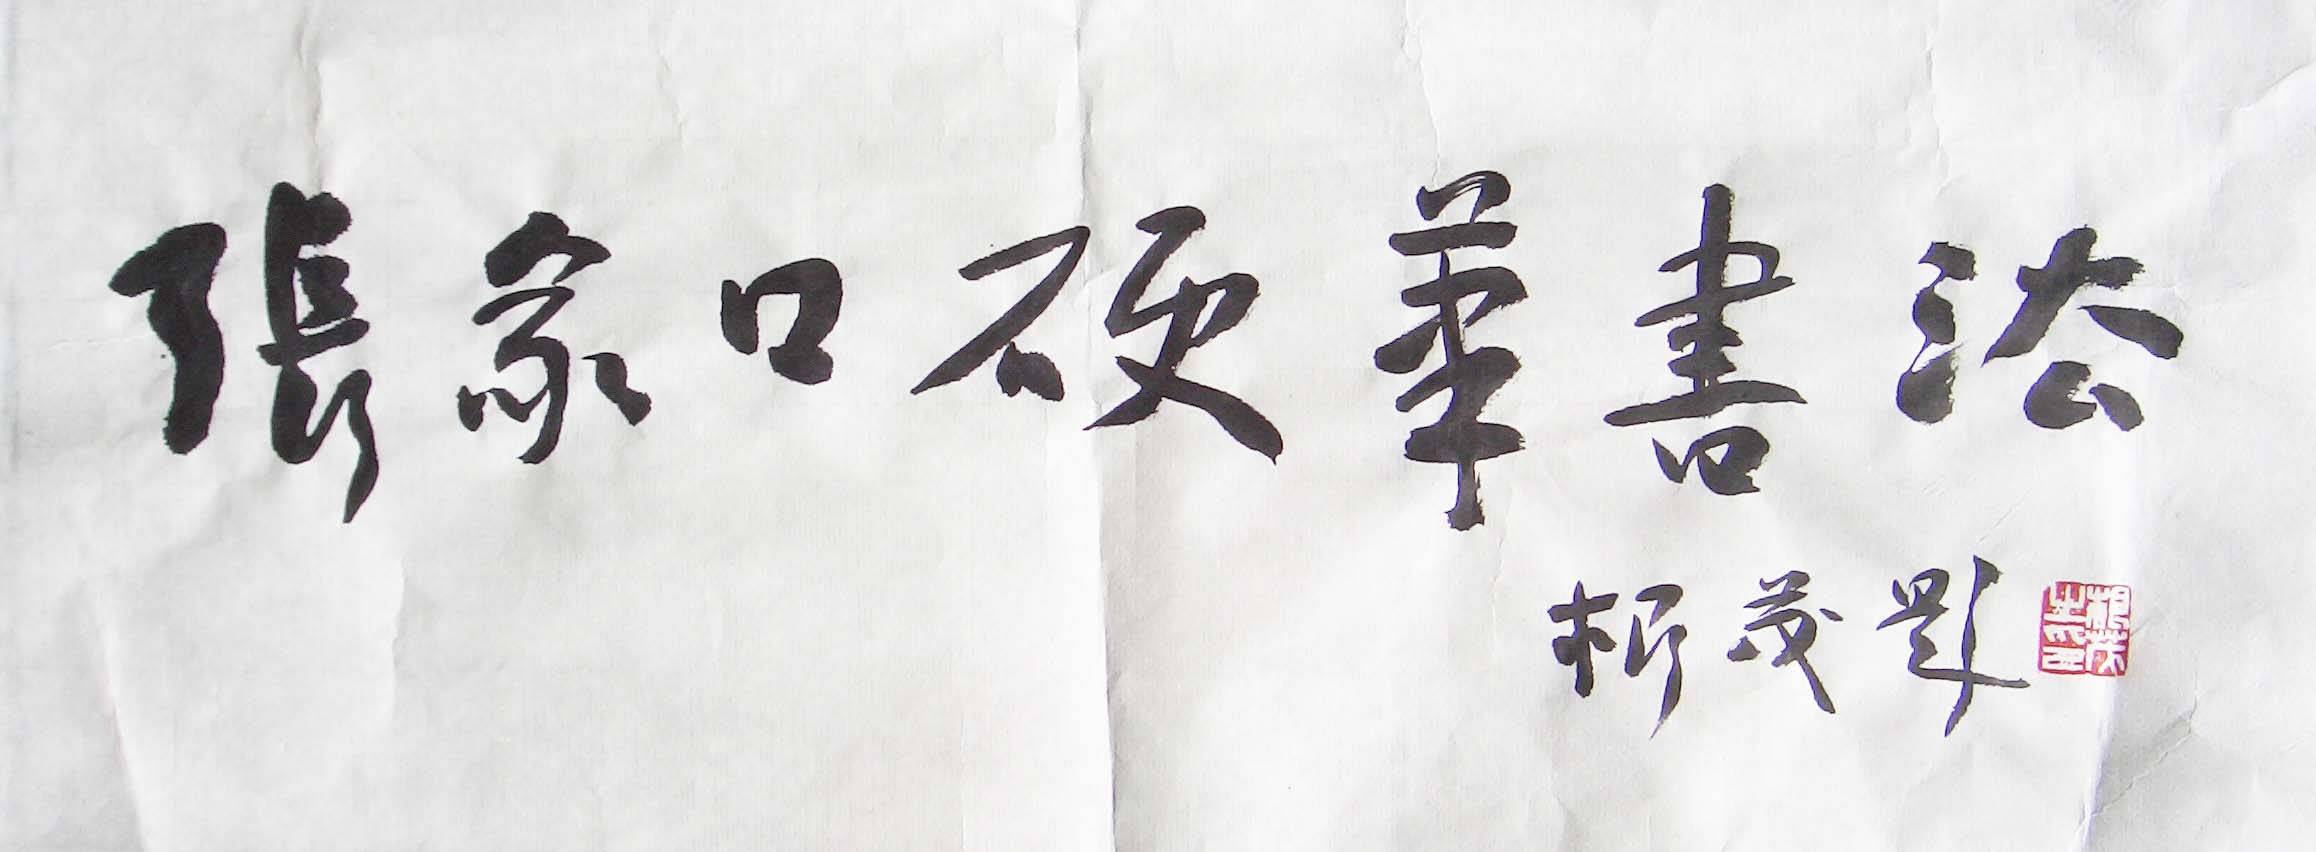 張家口硬筆書法
柳茂題